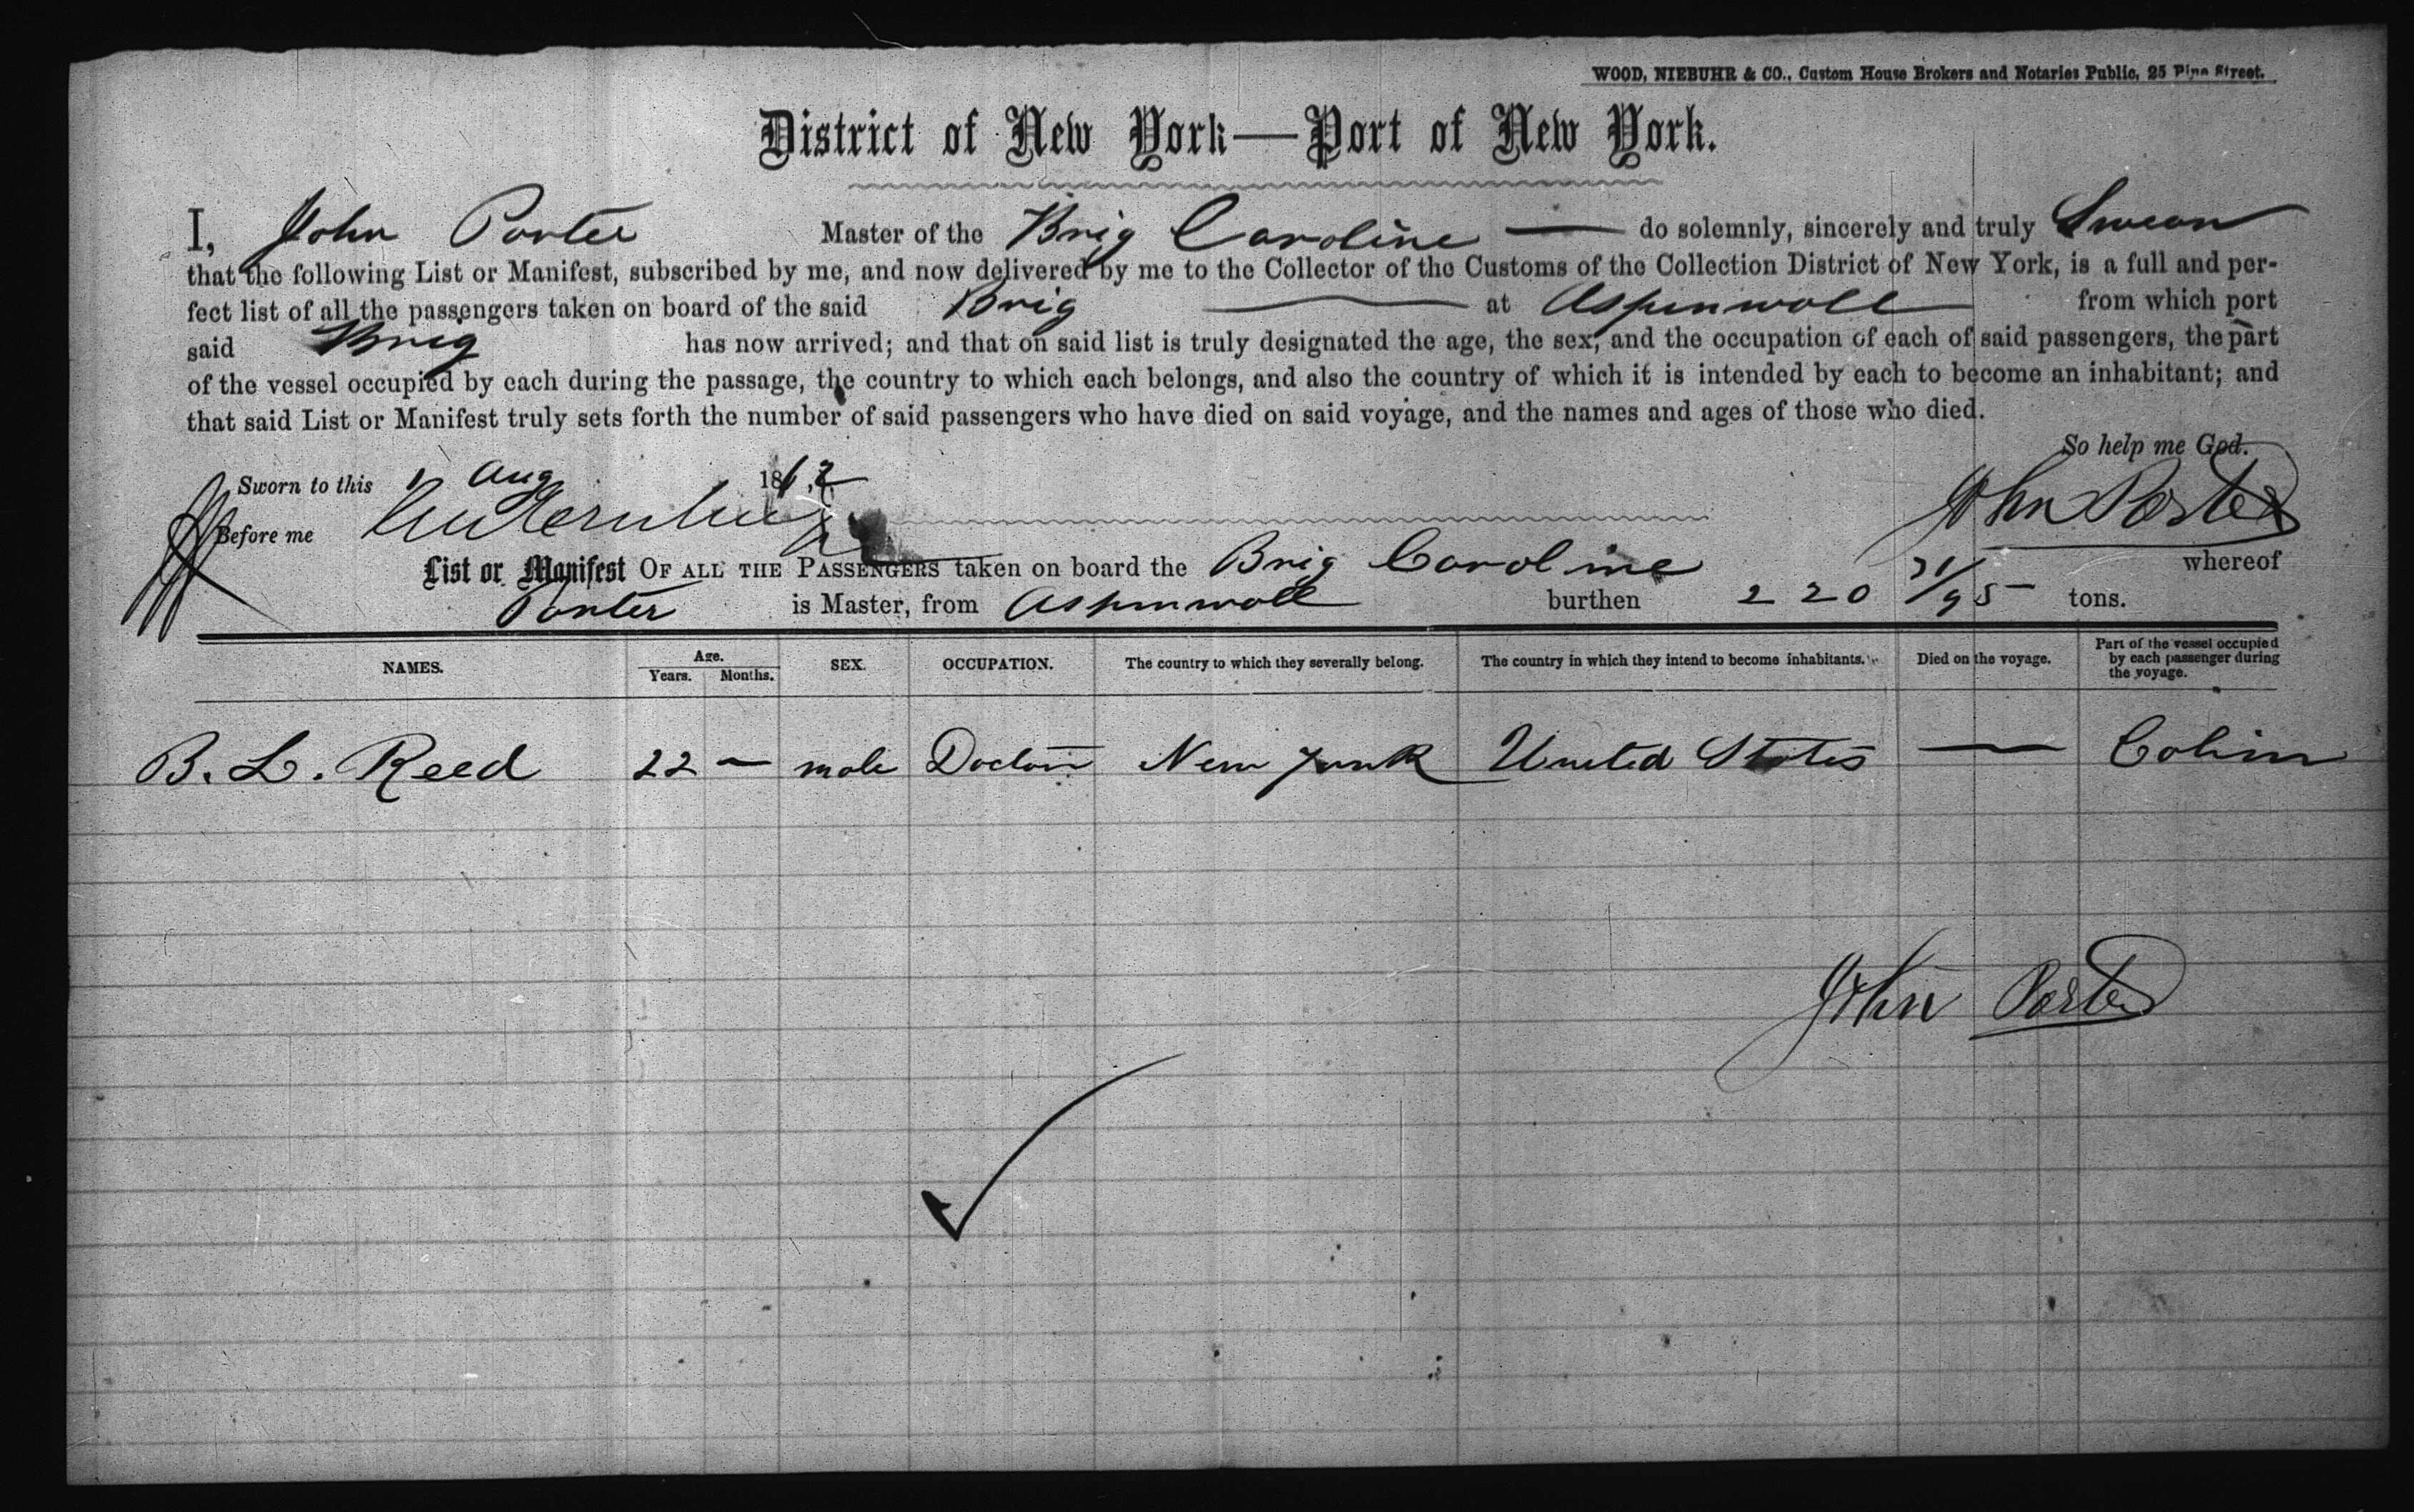 WOOD, NIEBUHR & CO., Custom House Brokers and Notaries Public, 25 Pine Street.
District of New York—Port of New York.
I, John Porter Master of the Brig Caroline — do solemnly, sincerely and truly Swear
that the following List or Manifest, subscribed by me, and now delivered by me to the Collector of the Customs of the Collection District of New York, is a full and per-
fect list of all the passengers taken on board of the said Brig — at Aspinwall from which port
said Brig has now arrived; and that on said list is truly designated the age, the sex, and the occupation of each of said passengers, the part
of the vessel occupied by each during the passage, the country to which each belongs, and also the country of which it is intended by each to become an inhabitant; and
that said List or Manifest truly sets forth the number of said passengers who have died on said voyage, and the names and ages of those who died.
So help me God.
Sworn to this Aug 1862
John Porter
Before me
List or Manifest OF ALL THE PASSENGERS taken on board the Brig Caroline whereof
Porter is Master, from Aspinwall burthen 220 /95 tons.
NAMES. Age. Years. Months. SEX. OCCUPATION. The country to which they severally belong. The country in which they intend to become inhabitants. Died on the voyage. Part of the vessel occupied by each passenger during the voyage.
B. L. Reed 22 — male Doctor New York United States — Cabin
John Porter